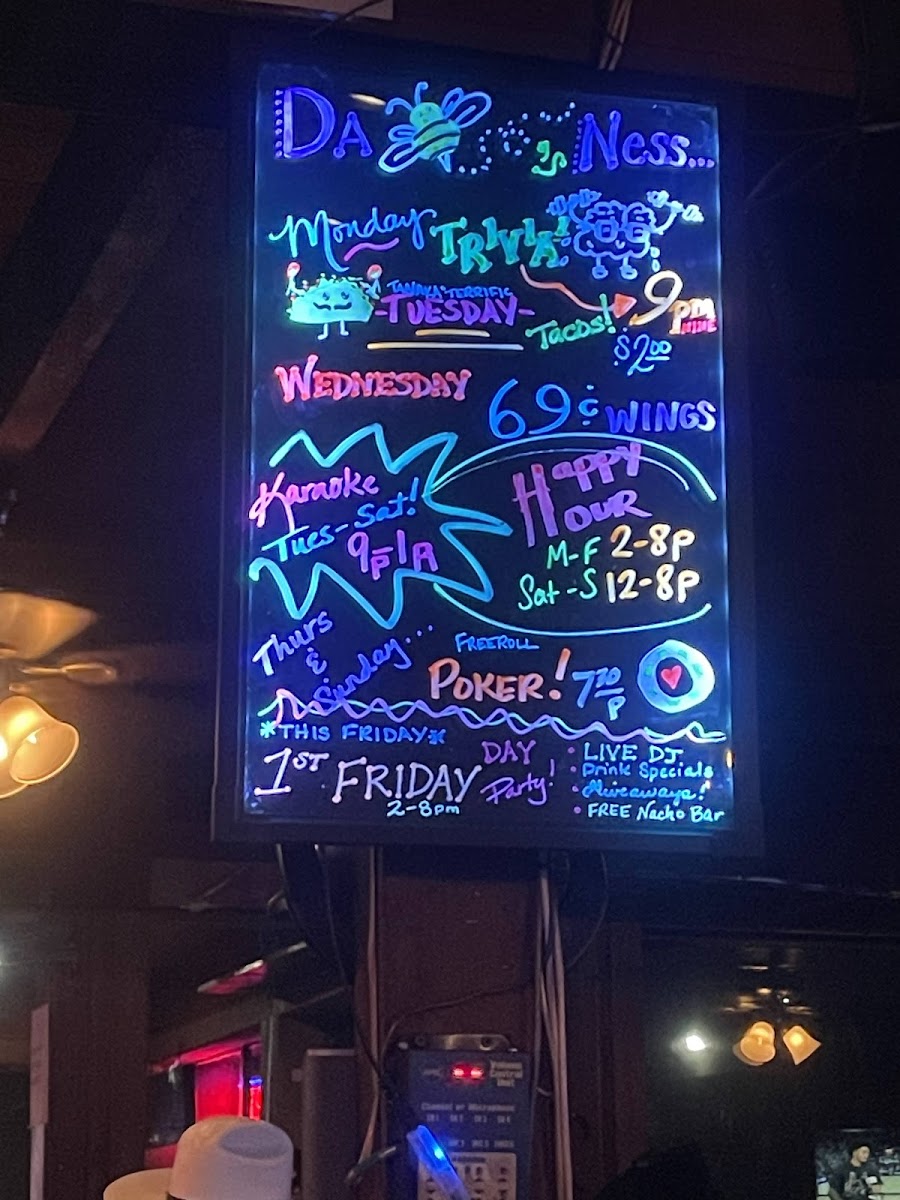 DA 'S NESS...
Monday TRIVIA!
TANAKA TERRIFIC
-TUESDAY-
Tacos! 9pm
$2.00
WEDNESDAY
69¢ WINGS
Karaoke
Tues-Sat!
9P1A
Happy
HOUR
M-F 2-8P
Sat-S 12-8P
Thurs
&
Sunday...
FREEROLL
POKER! 730P
*THIS FRIDAY*
1ST FRIDAY
2-8pm
DAY
Party!
• LIVE DJ
• Drink Specials
• Giveaways!
• FREE Nacho Bar
Volume
Control
Unit
Channel or Microphone